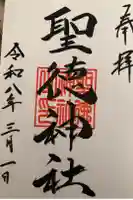 奉拝
聖徳神社
令和八年三月一日